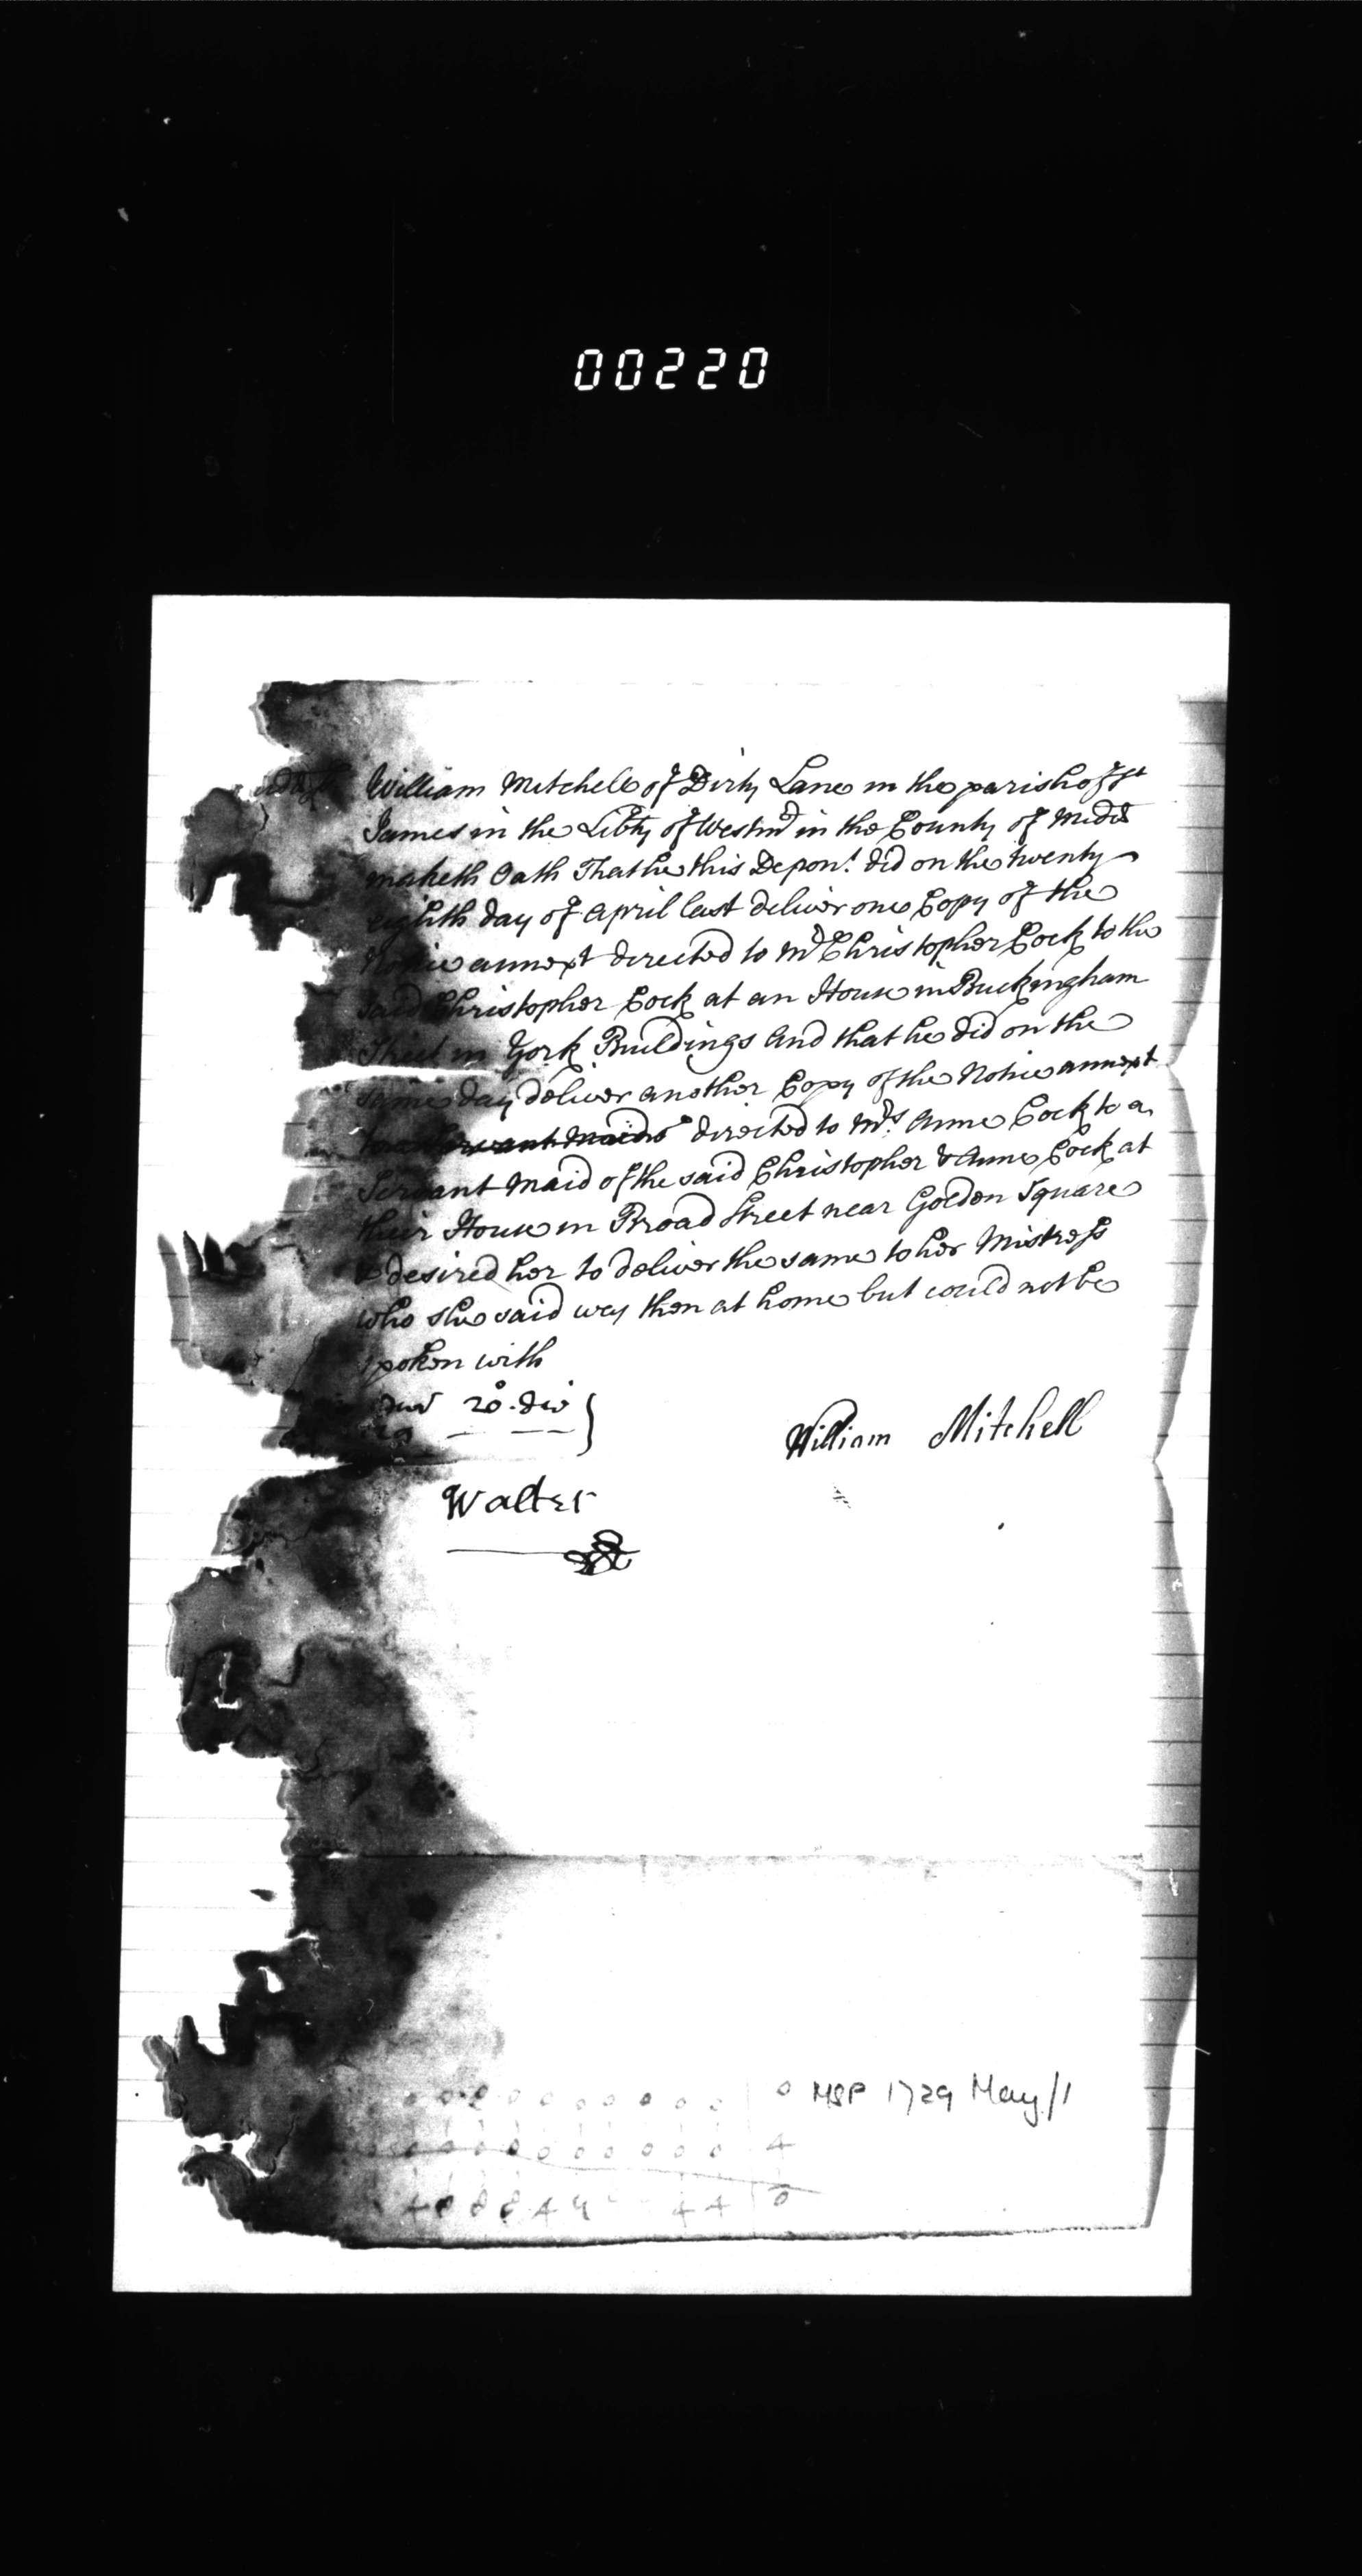 00220
William Mitchell of Dirty Lane in the parish of St
James in the Libty of Westmr in the County of Middx
maketh Oath That he this Depont. did on the twenty
eighth day of April last deliver one Copy of the
Notice annext directed to Mr Christopher Cock to the
said Christopher Cock at an House in Buckingham
Street in York Buildings And that he did on the
same day deliver another Copy of the Notice annext
to a Servant Maid directed to Mrs. Anne Cock to a
Servant Maid of the said Christopher & Anne Cock at
their House in Broad Street near Golden Square
& desired her to deliver the same to her Mistress
who she said was then at home but could not be
spoken with
Jur 20. die
William Mitchell
Walter
0 MSP 1729 May/1
4
0